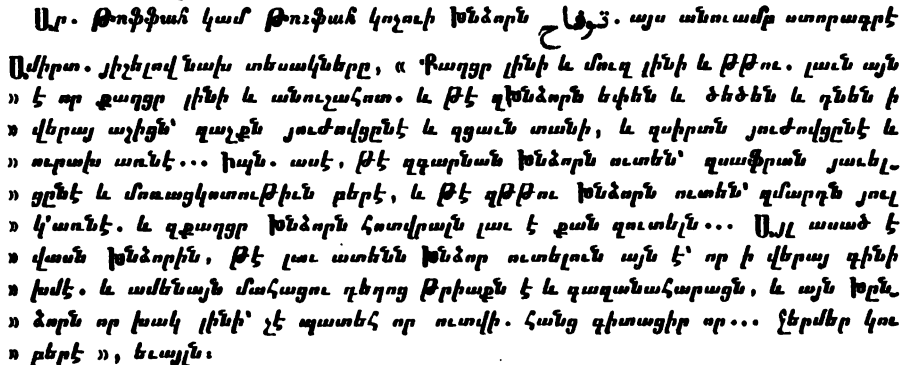 Ար. Թոֆֆահ կամ Թուֆահ կոչուի Խնձորն توفاح. այս անուամբ ստորագրէ
Ամիրտ. յիշելով նախ տեսակները, « Քաղցր լինի և մուզ լինի և ԹԹու. լաւն այն
» է որ քաղցր լինի և անուշահոտ. և թէ զԽնձորն եփեն և ծեծեն և դնեն ի
» վերայ աչիցն՝ զաչքն յուժովցընէ և զցաւն տանի, և զսիրտն յուժովցընէ և
» ուրախ առնէ... Իպն. ասէ, թէ զգարնան Խնձորն ուտեն՝ զսաֆրան յաւել-
» ցընէ և մոռացկոտութիւն բերէ, և թէ զԹԹու Խնձորն ուտեն՝ զմարդն յուլ
» կ՚առնէ. և զքաղցր Խնձորն հոտվրալն լաւ է քան զուտելն... Այլ ասած է
» վասն Խնձորին, թէ լաւ ատենն Խնձոր ուտելուն այն է՝ որ ի վերայ գինի
» խմէ. և ամենայն մահացու դեղոց Թրիաքն է և գազանահարացն, և այն Խըն-
» ձորն որ խակ լինի՝ չէ պատեհ որ ուտվի. հանց գիտացիր որ... ջերմեր կու
» բերէ », ևւայլն։